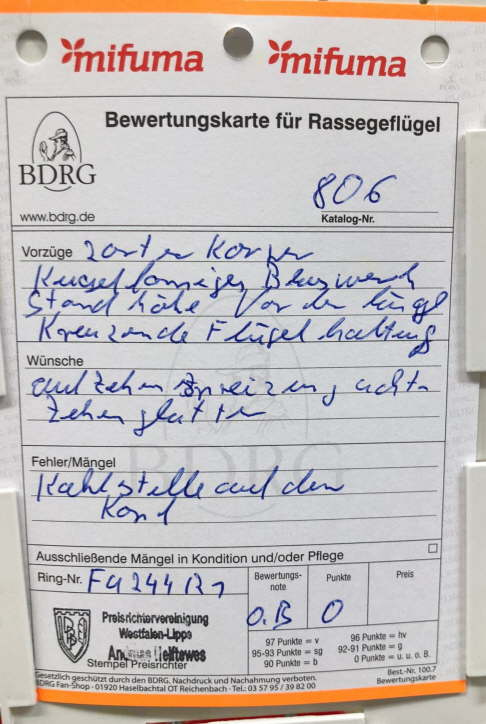 mifuma mifuma
Bewertungskarte für Rassegeflügel
BDRG
www.bdrg.de
806
Katalog-Nr.
Vorzüge zarter Körper
Kugelformiger
Stand höhe Vor der
Kreuzende Flügel haltung
Wünsche
auf zehen spreizung achten
Zehen glatter
Fehler/Mängel
Kahlstelle auf den
Kopf
Ausschließende Mängel in Kondition und/oder Pflege
Ring-Nr.
Bewertungs-note Punkte Preis
O.B 0
Preisrichtervereinigung
Westfalen-Lippe
Stempel Preisrichter
97 Punkte = v 96 Punkte = hv
95-93 Punkte = sg 92-91 Punkte = g
90 Punkte = b 0 Punkte = u. u. o. B.
Gesetzlich geschützt durch den BDRG. Nachdruck und Nachahmung verboten. Best.-Nr. 100.7
BDRG Fan-Shop · 01920 Haselbachtal OT Reichenbach · Tel.: 03 57 95 / 39 82 00 Bewertungskarte